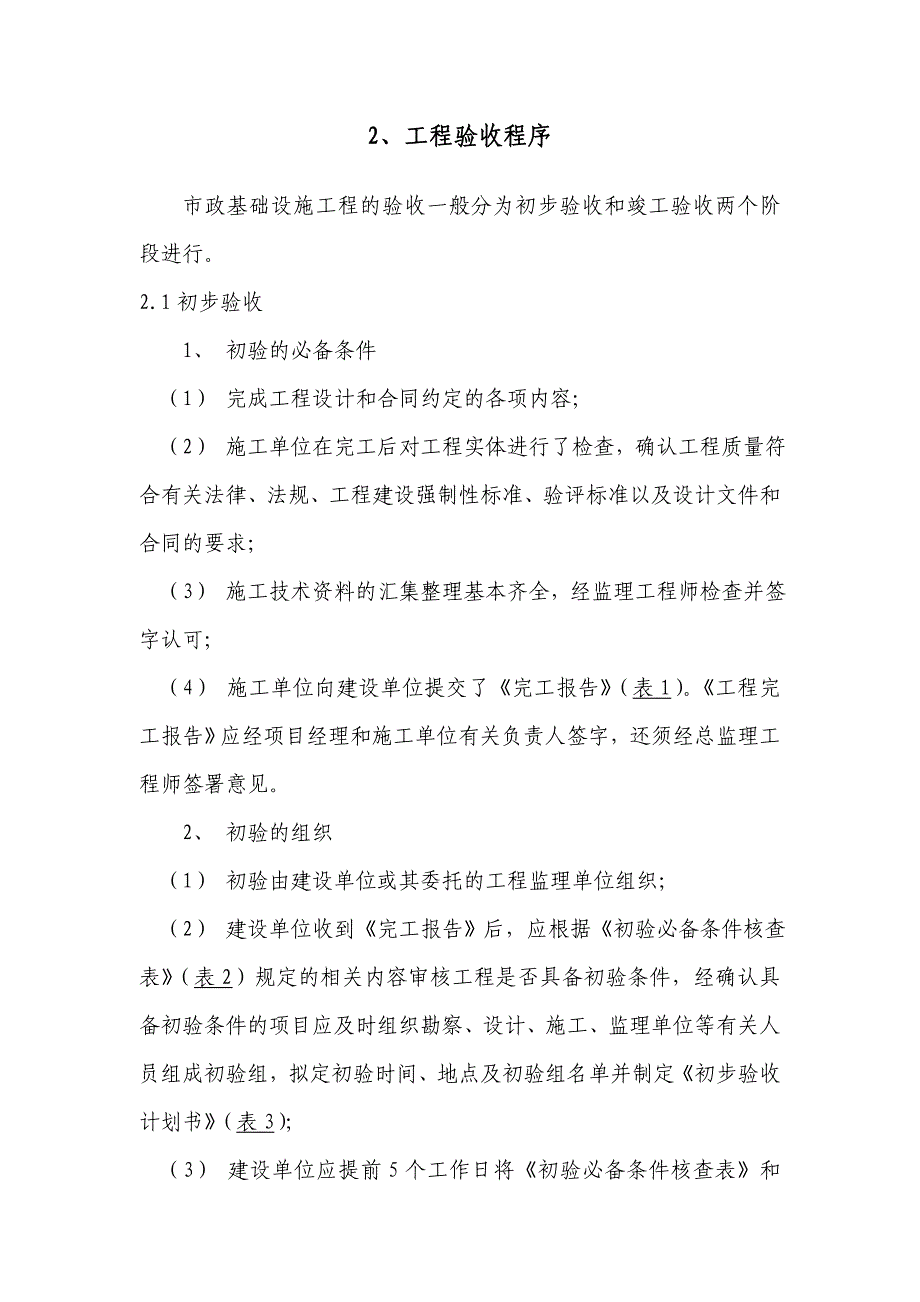 2、工程验收程序
市政基础设施工程的验收一般分为初步验收和竣工验收两个阶
段进行。
2.1初步验收
1、 初验的必备条件
（1） 完成工程设计和合同约定的各项内容；
（2） 施工单位在完工后对工程实体进行了检查，确认工程质量符
合有关法律、法规、工程建设强制性标准、验评标准以及设计文件和
合同的要求；
（3） 施工技术资料的汇集整理基本齐全，经监理工程师检查并签
字认可；
（4） 施工单位向建设单位提交了《完工报告》（表1）。《工程完
工报告》应经项目经理和施工单位有关负责人签字，还须经总监理工
程师签署意见。
2、 初验的组织
（1） 初验由建设单位或其委托的工程监理单位组织；
（2） 建设单位收到《完工报告》后，应根据《初验必备条件核查
表》（表2）规定的相关内容审核工程是否具备初验条件，经确认具
备初验条件的项目应及时组织勘察、设计、施工、监理单位等有关人
员组成初验组，拟定初验时间、地点及初验组名单并制定《初步验收
计划书》（表3）；
（3） 建设单位应提前5个工作日将《初验必备条件核查表》和